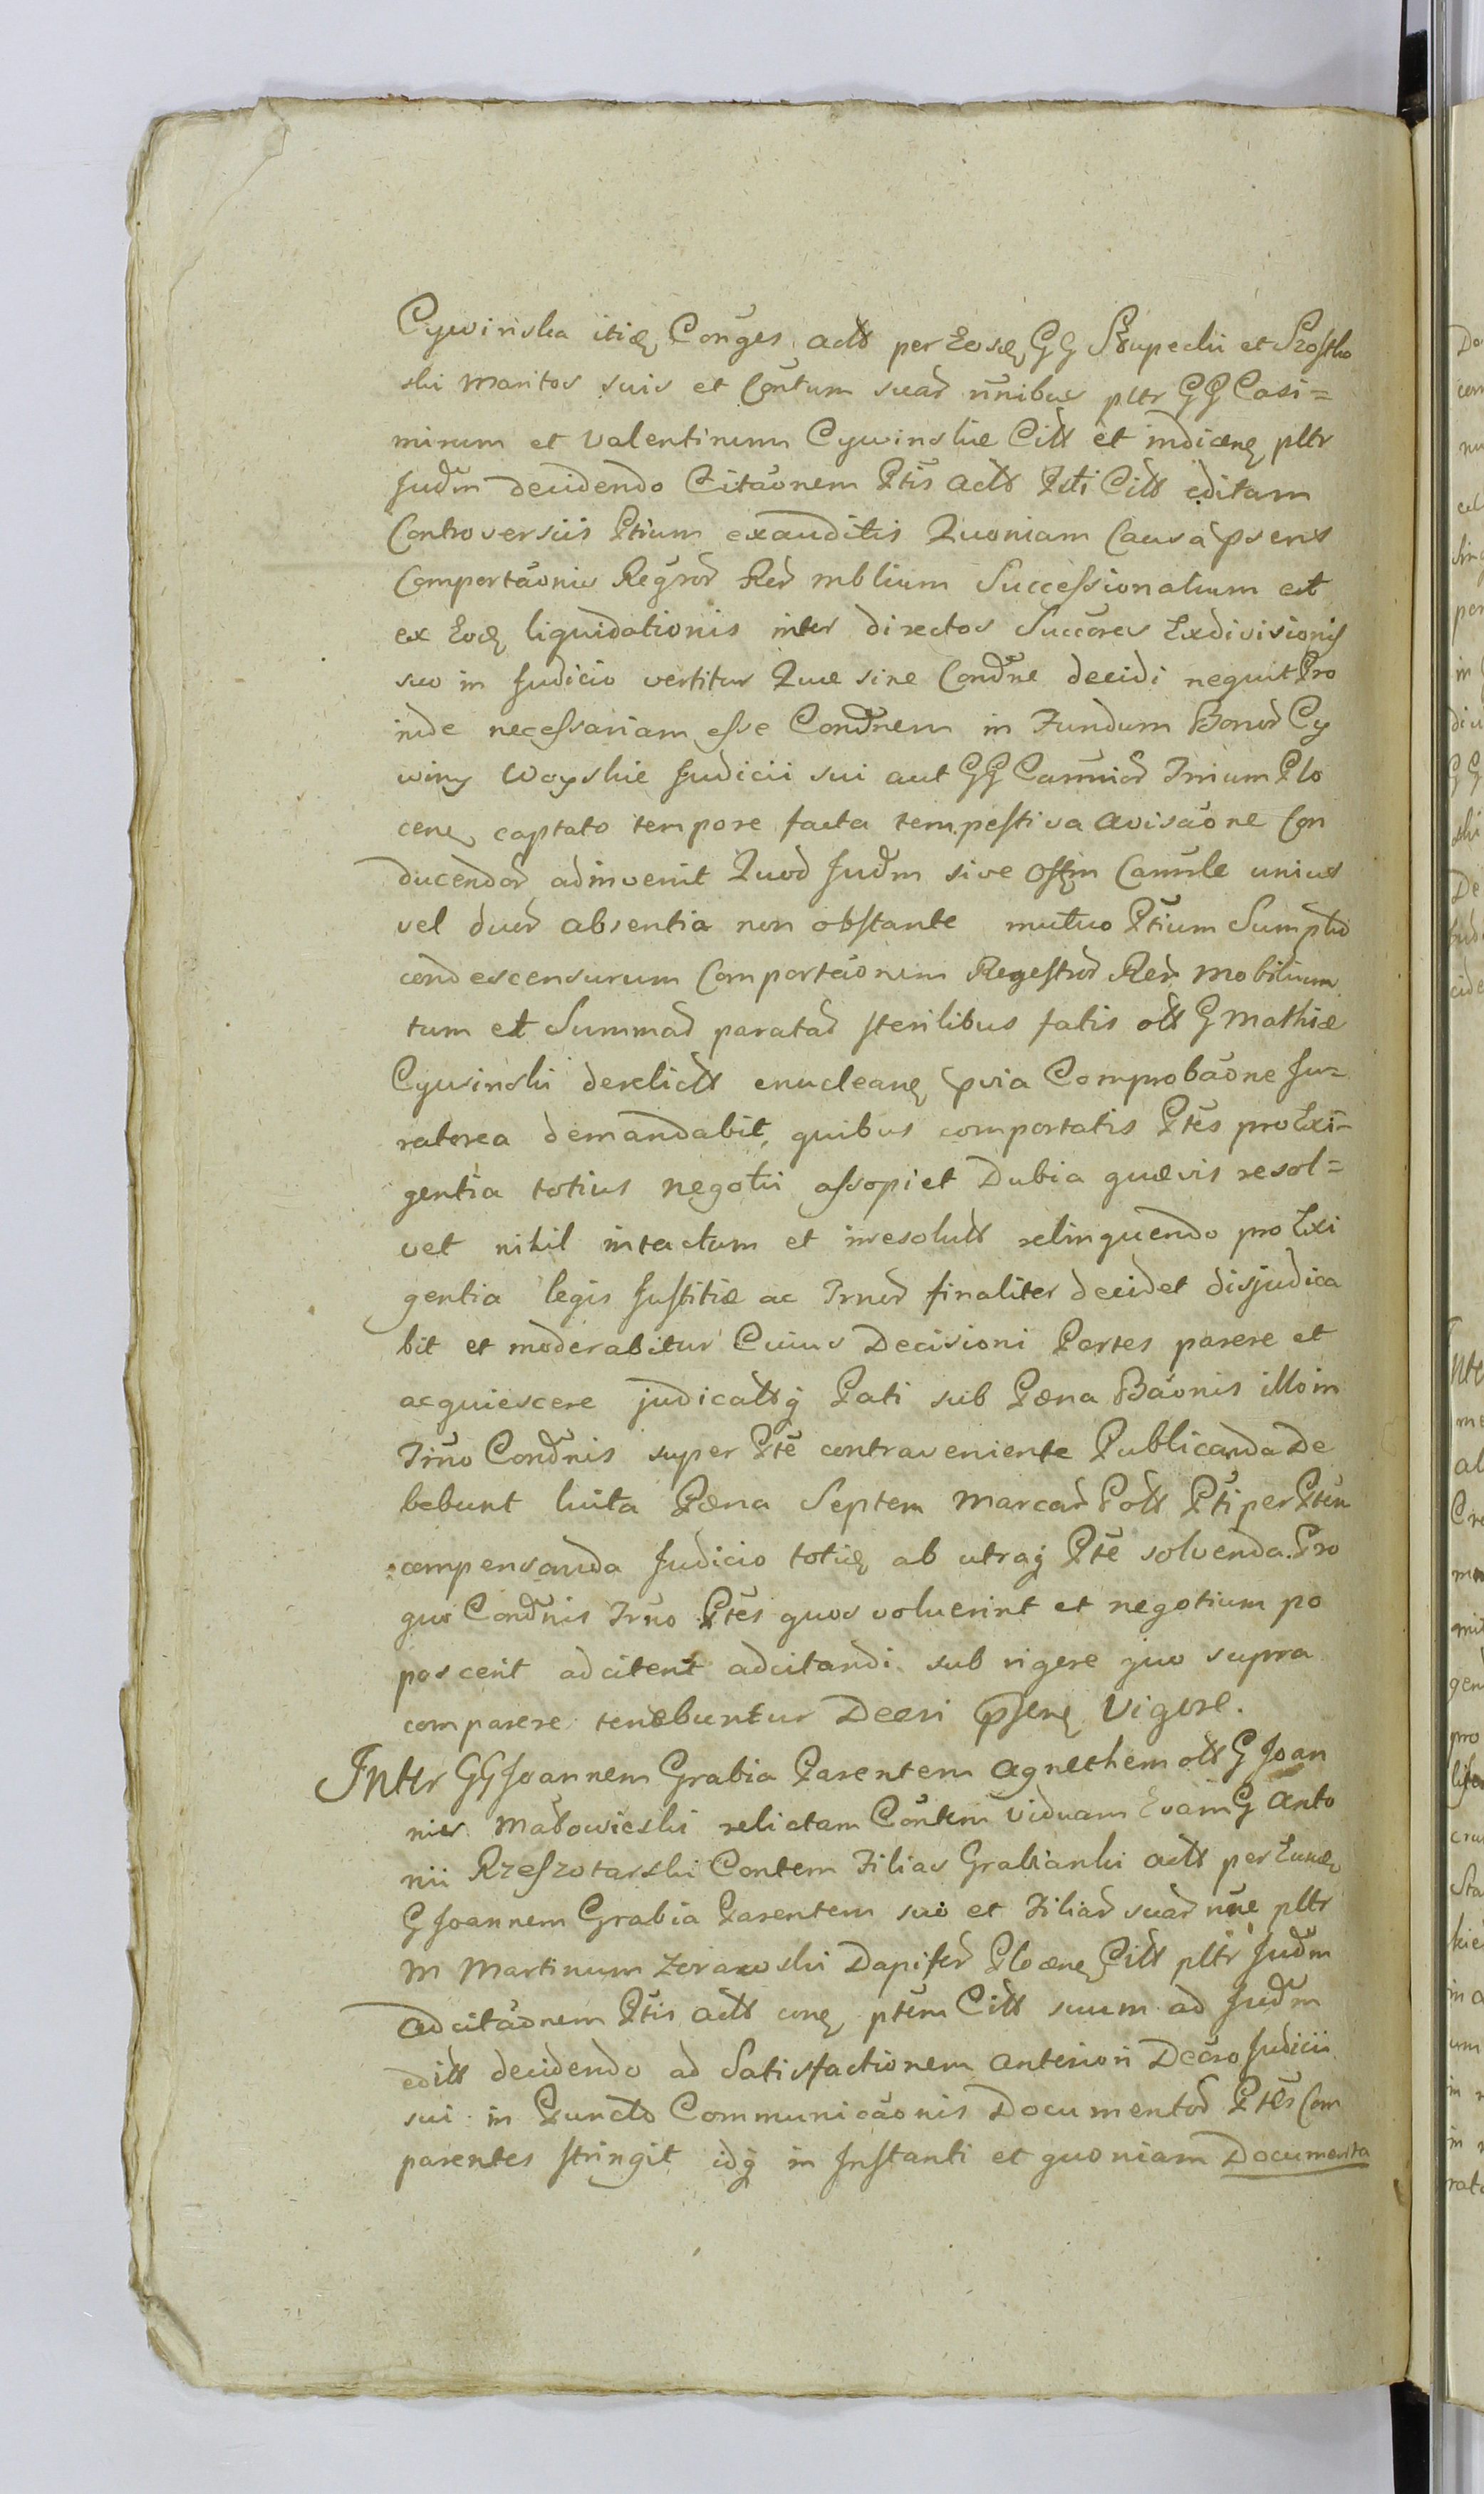 Cywinska itidę Conges actt per Eosdę GG Skupechi et Szostko
ski maritos suis et Contum suar nnibus pltr GG Casi=
mirum et Valentinum Cywinskie Citt et indicanę pltr
Judm decidendo Citaonem Ptis actt Pti Citt editam
Controversiis Ptium exauditis Quoniam Causa psens
Comportaonis Regror Rer mblium Successionalium est
ex Eoq liquidationis inter directos Succores Exdivisionis
suo in Judicio vertitur Quæ sine Condne decidi nequit Pro
inde necessariam esse Condnem in Fundum Bonor Cy
winy Woyskie Judicii sui aut GG Camrior Trrium Plo
cenę captato tempore facta tempestiva avisaone Con
ducendor adinvenit Quod Judm sive Offm Camrle unius
vel duor absentia non obstante mutuo Ptium Sumptu
condescensurum Comportaonem Regestror Rer mobilium
tum et Summar paratar sterilibus fatis ott G Mathiæ
Cywinski derelictt enucleanę pvia Comprobaone Ju=
ratorea demandabit, quibus comportatis Ptes pro Exi-
gentia totius negotii assopiet Dubia quævis resol=
vet nihil intactum et irresolutt relinquendo pro Exi
gentia legis Justitiæ ac Trrnor finaliter decidet disjudica
bit et moderabitur Cuius Decisioni Partes parere et
acquiescere judicattq Pati sub Pæna Baonis illo in
Trno Condnis super Pte contraveniente Publicanda De
bebunt luita Pæna Septem marcar Polt Pti per Ptem
compensanda Judicio totię ab utraq Pte solvenda. Pro
quo Condnis Trno Ptes quos voluerint et negotium po
poscerit adcitent adcitandi sub rigore quo supra
comparere tenebuntur Decri psenę Vigore.
Inter GG Joannem Grabia Parentem Agnethem ott G Joan
nis Madowieski relictam Contem Viduam Evam G Anto
nii Rzeszotarski Contem Filias Grabianki actt per Eundę
G Joannem Grabia Parentem suo et Filiar suar nne pltr
M Martinum Zerawski Dapifer Plocenę Citt pltr Judm
ad citaonem Ptis actt conę ptem Citt suum ad Judm
editt decidendo ad Satisfactionem anteriori Decro Judicii
sui in Puncto Communicaonis Documentor Ptes Com
parentes stringit idq in Instanti et quoniam Documenta